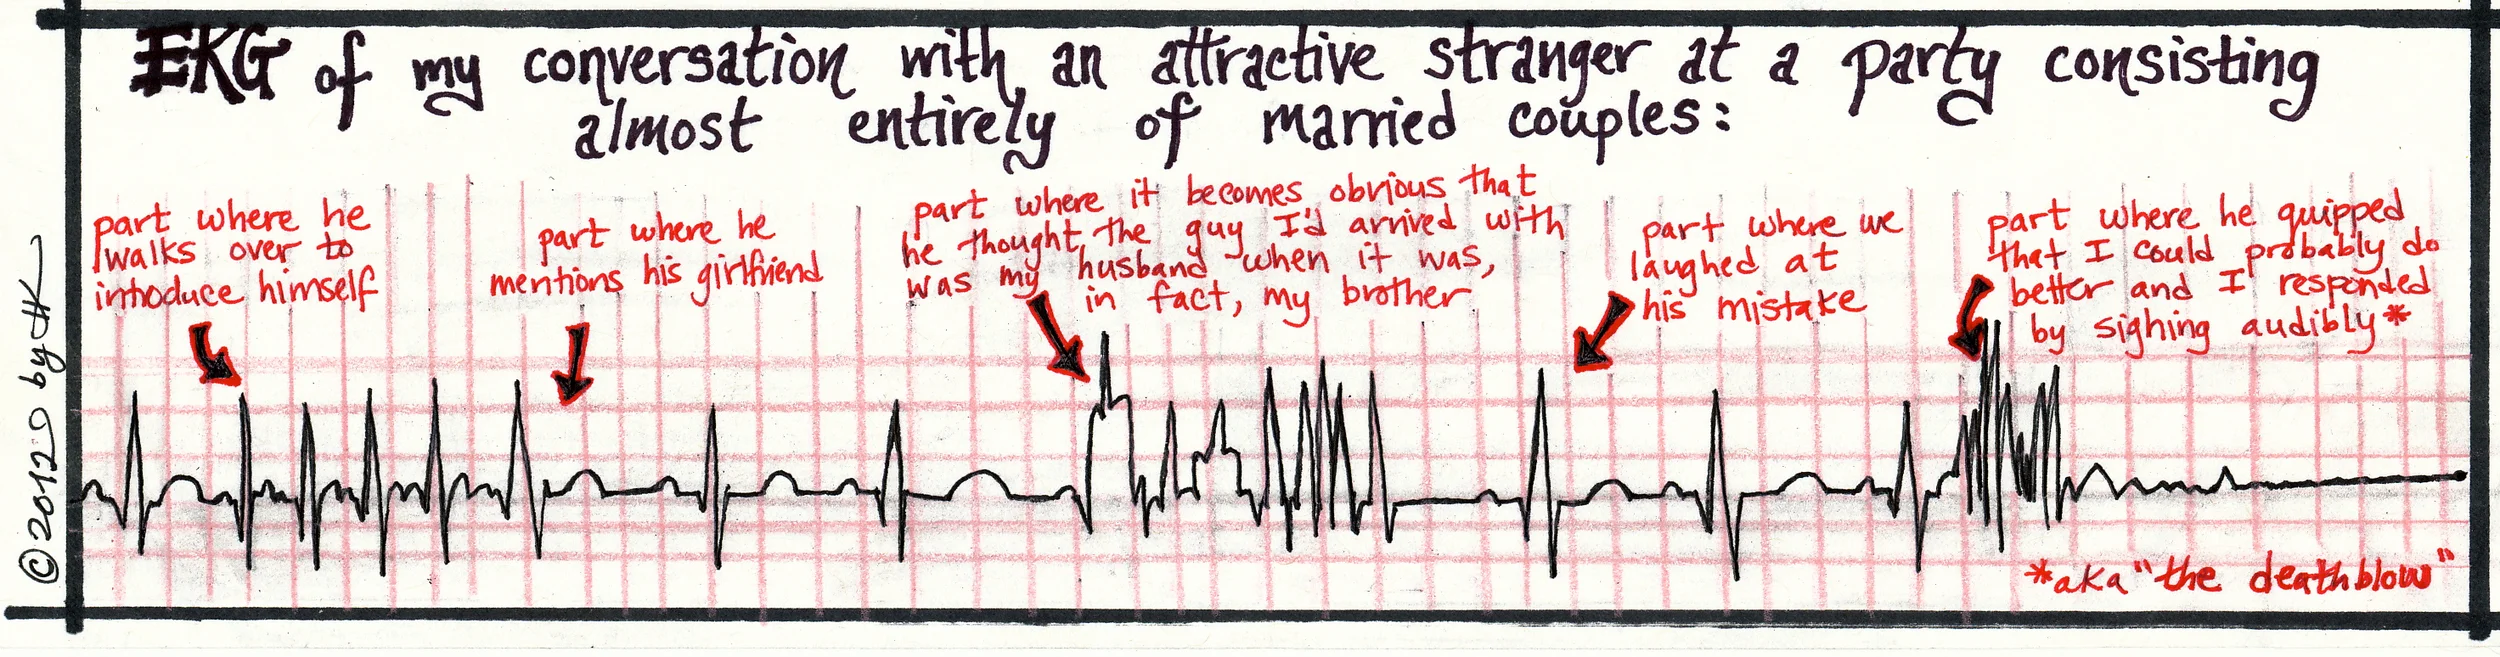 EKG of my conversation with an attractive stranger at a party consisting
almost entirely of married couples:
part where he
walks over to
introduce himself
part where he
mentions his girlfriend
part where it becomes obvious that
he thought the guy I'd arrived with
was my husband when it was,
in fact, my brother
part where we
laughed at
his mistake
part where he quipped
that I could probably do
better and I responded
by sighing audibly*
*aka "the deathblow"
©2012 by JK